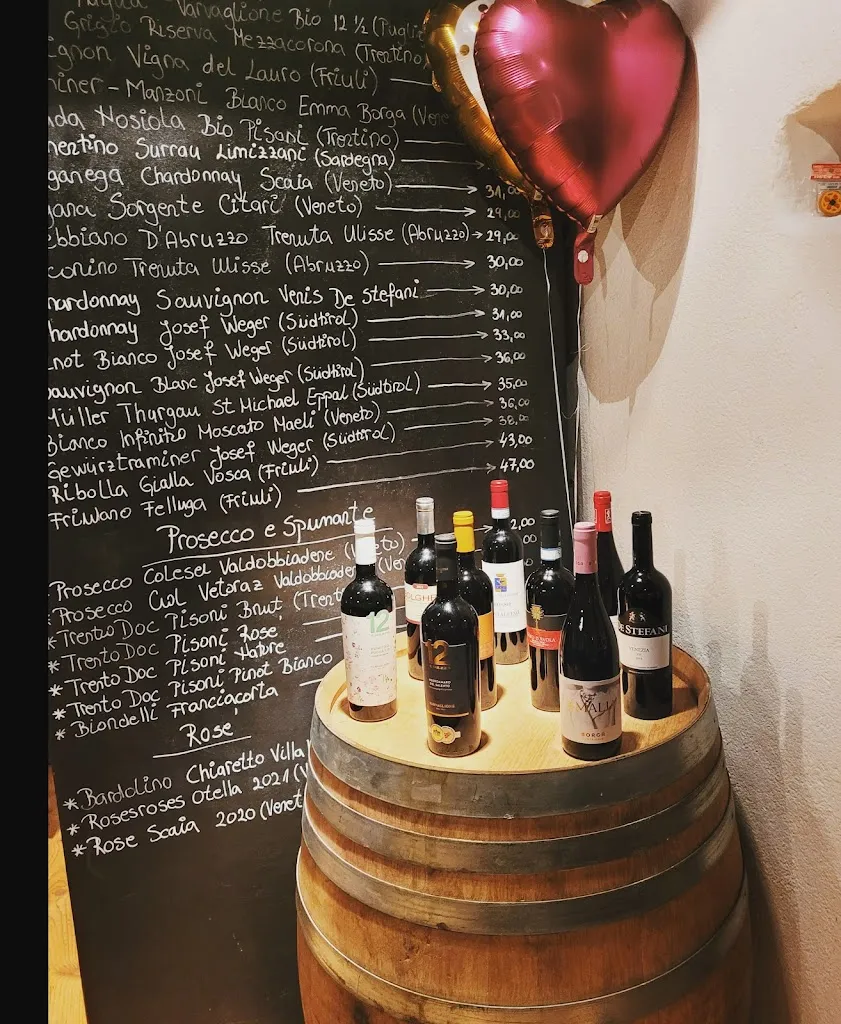 Varvaglione Bio 12 ½ (Puglie
Grigio Riserva Mezzacorona (Trentino)
ignon Vigna del Lauro (Friuli)
iner - Manzoni Bianco Emma Borga (Vene
da Nosiola Bio Pisoni (Trentino)
mentino Surrau Limizzani (Sardegna)
ganega Chardonnay Scaia (Veneto) 31,00
gana Sorgente Citari (Veneto) 29,00
ebbiano D'Abruzzo Trenuta Ulisse (Abruzzo) 29,00
corino Trenuta Ulisse (Abruzzo) 30,00
hardonnay Sauvignon Venis De Stefani 30,00
hardonnay Josef Weger (Südtirol) 31,00
not Bianco Josef Weger (Südtirol) 33,00
auvignon Blanc Josef Weger (Südtirol) 36,00
Müller Thurgau St Michael Eppal (Südtirol) 35,00
Bianco Infinito Moscato Maeli (Veneto) 36,00
Gewürztraminer Josef Weger (Südtirol) 38,00
Ribolla Gialla Vosca (Friuli) 43,00
Friulano Felluga (Friuli) 47,00
Prosecco e Spumante
Prosecco Colesel Valdobbiadene (Veneto) 2,00
*Prosecco Col Vetoraz Valdobbiadene (Ven
*Trento Doc Pisoni Brut (Trent
*Trento Doc Pisoni Rose
*Trento Doc Pisoni Nature
*Trento Doc Pisoni Pinot Bianco
*Biondelli Franciacorta
Rosé
*Bardolino Chiaretto Villa
*Rosesroses Otella 2021 (V
*Rose Scaia 2020 (Venet
12
OLGHE
12
DE STEFANI
VENEZIA
SMALL
BORGA